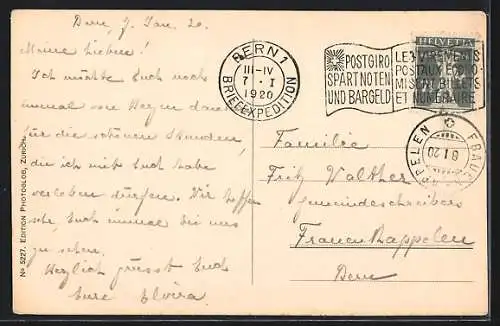 Bern, 7. Jan. 20.
Meine Lieben!
Ich möchte Euch noch
einmal von Herzen danken
für die schönen Stunden,
die ich mit Euch habe
verleben dürfen. Wir hoffen
Euch einmal bei uns
zu sehen.
Herzlich grüsst Euch
Eure Elvira.
No. 5227. EDITION PHOTOGLOB, ZÜRICH
BERN 1
III-IV
7. I
1920
BRIEFEXPEDITION
POSTGIRO
SPART NOTEN
UND BARGELD
LES VIREMENTS
POSTAUX ECONO-
MISENT BILLETS
ET NUMÉRAIRE
HELVETIA
8 I 20
Familie
Fritz Walther
gemeindeschreibers
Frauenkappelen
Bern